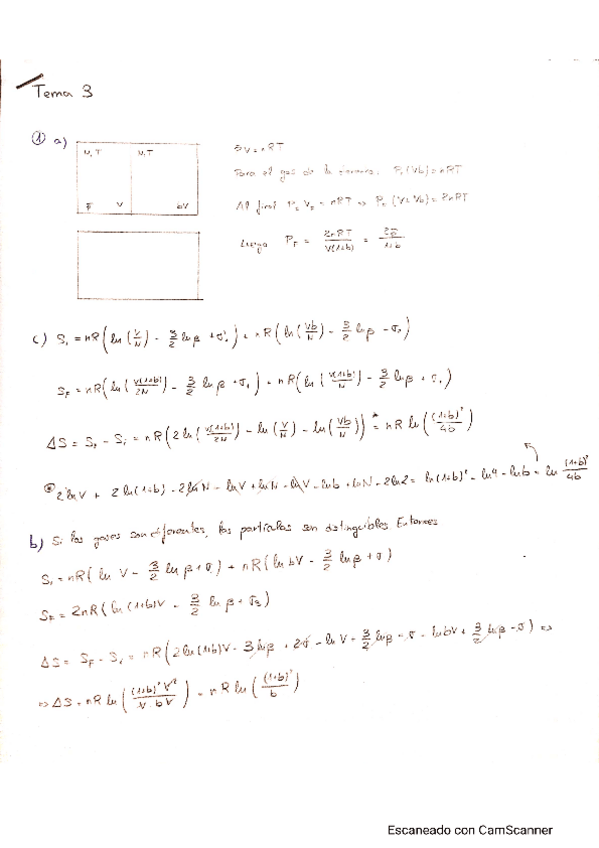 Tema 3
① a)
N, T N, T
P V bV
PV = nRT
Para el gas de la derecha, P(Vb) = nRT
Al final P_F V_F = nRT ⇒ P_F (V+Vb) = 2nRT
Luego P_F = 2nRT / V(1+b) = 2P / 1+b
c) S_i = nR( ln(V/N) - 3/2 lnβ + σ_0 ) + nR( ln(Vb/N) - 3/2 lnβ - σ_0 )
S_F = nR( ln(V(1+b)/2N) - 3/2 lnβ + σ_0 ) + nR( ln(V(1+b)/N) - 3/2 lnβ + σ_0 )
ΔS = S_F - S_i = nR( 2 ln(V(1+b)/2N) - ln(V/N) - ln(Vb/N) ) * = nR ln( (1+b)² / 4b )
* 2 ln V + 2 ln(1+b) - 2 ln N - ln V + ln N - ln V - ln b + ln N - 2 ln 2 = ln(1+b)² - ln 4 - ln b = ln (1+b)² / 4b
b) Si los gases son diferentes, las partículas son distinguibles Entonces
S_i = nR( ln V - 3/2 lnβ + σ ) + nR( ln bV - 3/2 lnβ + σ )
S_F = 2nR( ln (1+b)V - 3/2 lnβ + σ_2 )
ΔS = S_F - S_i = nR( 2 ln (1+b)V - 3 lnβ + 2σ - ln V + 3/2 lnβ - σ - ln bV + 3/2 lnβ - σ ) ⇒
⇒ ΔS = nR ln( (1+b)² V² / V · bV ) = nR ln( (1+b)² / b )
Escaneado con CamScanner